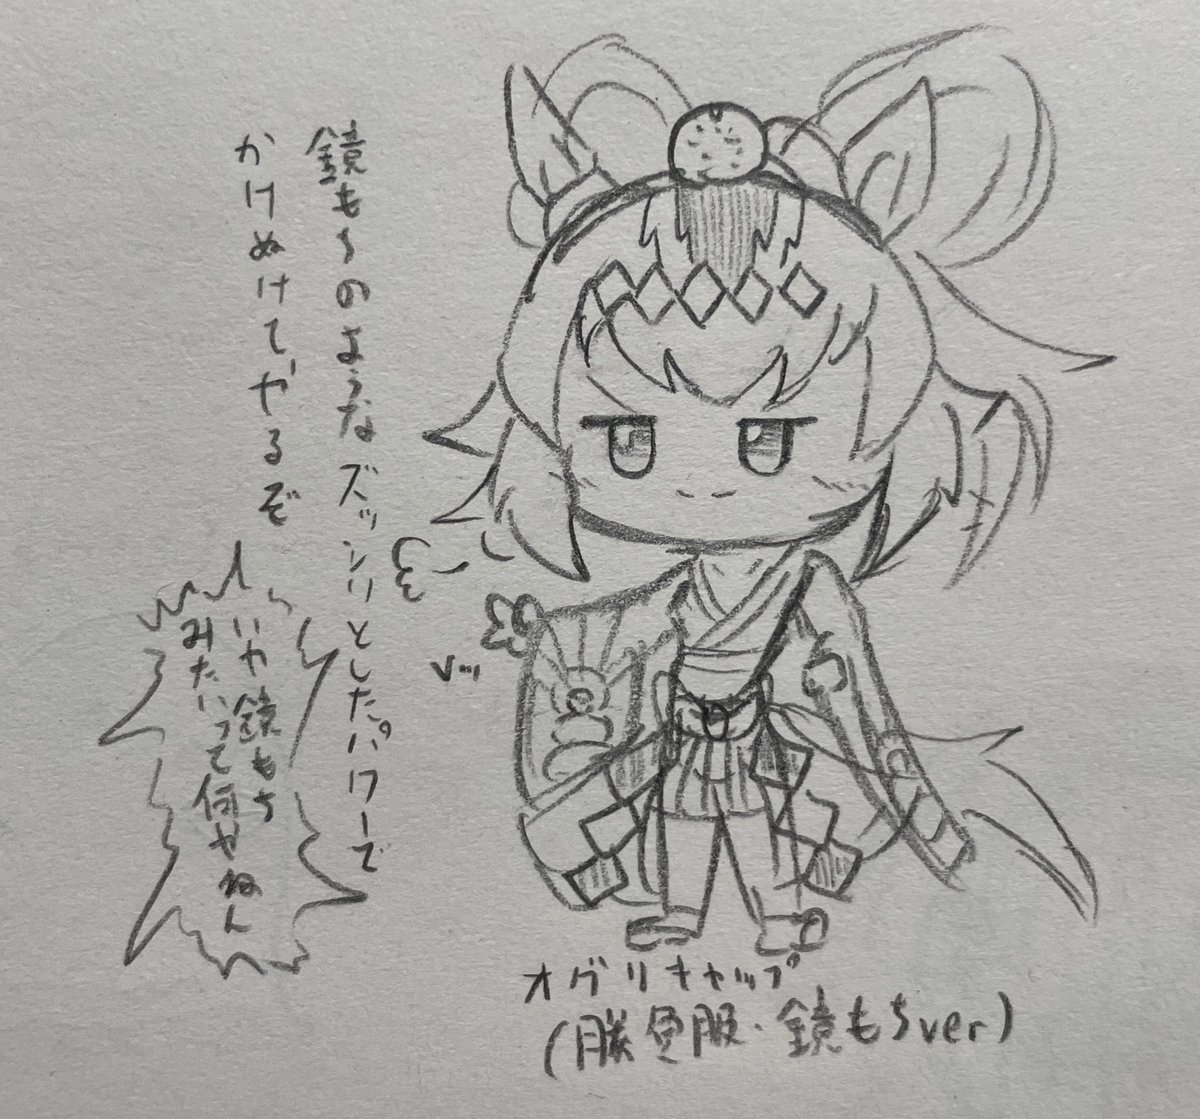 鏡もちのようなズッシリとしたパワーで
かけぬけてやるぞ
いや鏡もち
みたいって何やねん
オグリキャップ
(勝負服・鏡もちver)